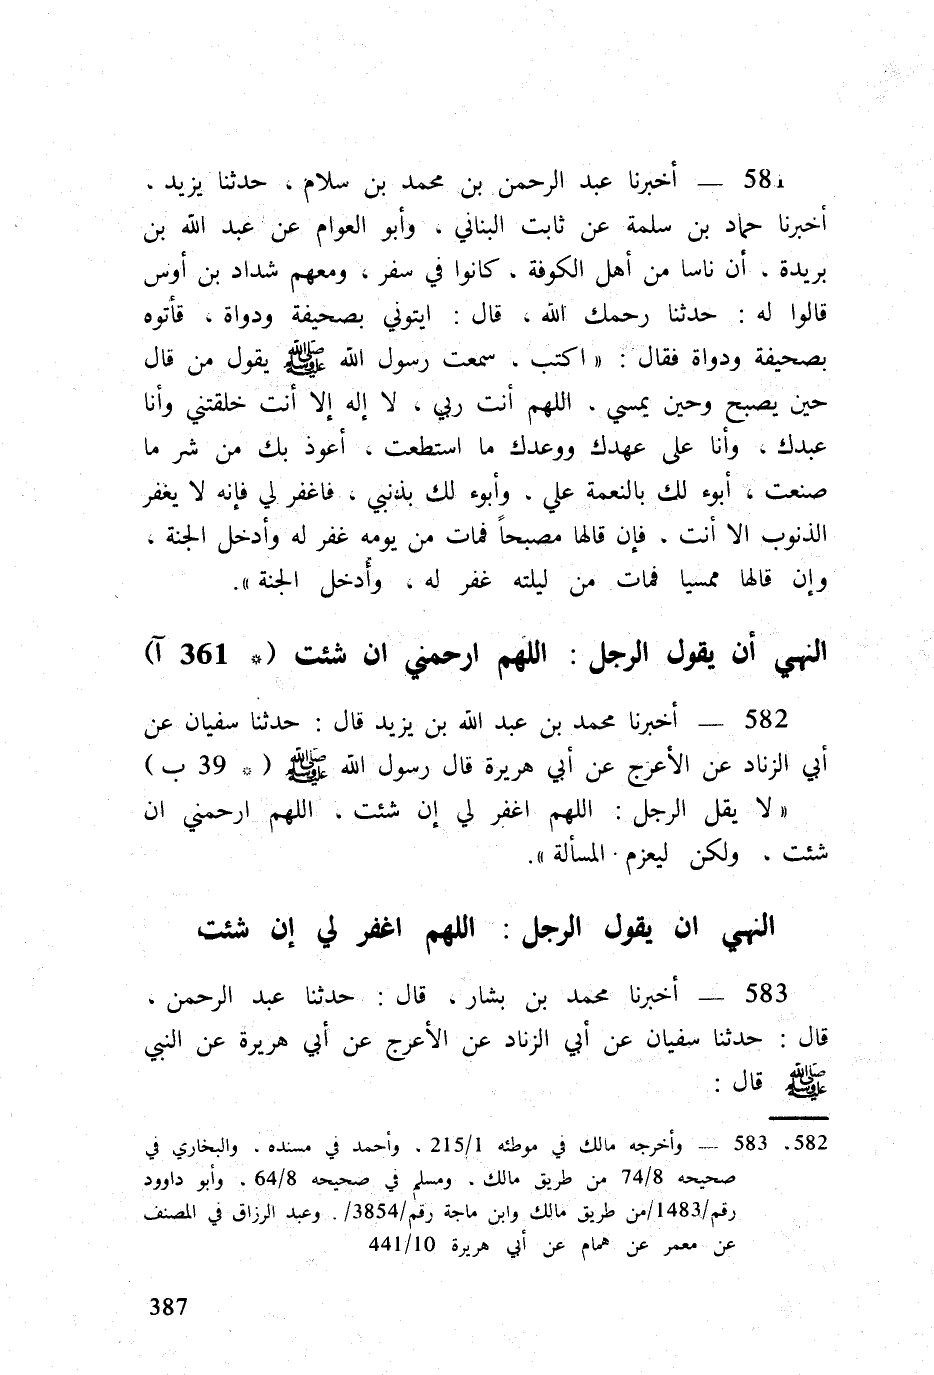 581 — أخبرنا عبد الرحمن بن محمد بن سلام ، حدثنا يزيد .
أخبرنا حماد بن سلمة عن ثابت البناني ، وأبو العوام عن عبد الله بن
بريدة . أن ناسا من أهل الكوفة . كانوا في سفر ، ومعهم شداد بن أوس
قالوا له : حدثنا رحمك الله ، قال : ايتوني بصحيفة ودواة ، فأتوه
بصحيفة ودواة فقال : « اكتب . سمعت رسول الله ﷺ يقول من قال
حين يصبح وحين يمسي . اللهم أنت ربي ، لا إله إلا أنت خلقتني وأنا
عبدك ، وأنا على عهدك ووعدك ما استطعت ، أعوذ بك من شر ما
صنعت ، أبوء لك بالنعمة علي . وأبوء لك بذنبي ، فاغفر لي فإنه لا يغفر
الذنوب الا أنت . فإن قالها مصبحاً فمات من يومه غفر له وأدخل الجنة ،
وإن قالها ممسيا فمات من ليلته غفر له ، وأُدخل الجنة ».
النهي أن يقول الرجل : اللهم ارحمني ان شئت (* 361 آ)
582 — أخبرنا محمد بن عبد الله بن يزيد قال : حدثنا سفيان عن
أبي الزناد عن الأعرج عن أبي هريرة قال رسول الله ﷺ ( * 39 ب )
« لا يقل الرجل : اللهم اغفر لي إن شئت . اللهم ارحمني ان
شئت . ولكن ليعزم المسألة ».
النهي ان يقول الرجل : اللهم اغفر لي إن شئت
583 — أخبرنا محمد بن بشار ، قال : حدثنا عبد الرحمن ،
قال : حدثنا سفيان عن أبي الزناد عن الأعرج عن أبي هريرة عن النبي
ﷺ قال :
582، 583 — وأخرجه مالك في موطئه 215/1 . وأحمد في مسنده . والبخاري في
صحيحه 74/8 من طريق مالك . ومسلم في صحيحه 64/8 . وأبو داوود
رقم/1483/من طريق مالك وابن ماجة رقم/3854/. وعبد الرزاق في المصنف
عن معمر عن همام عن أبي هريرة 441/10
387